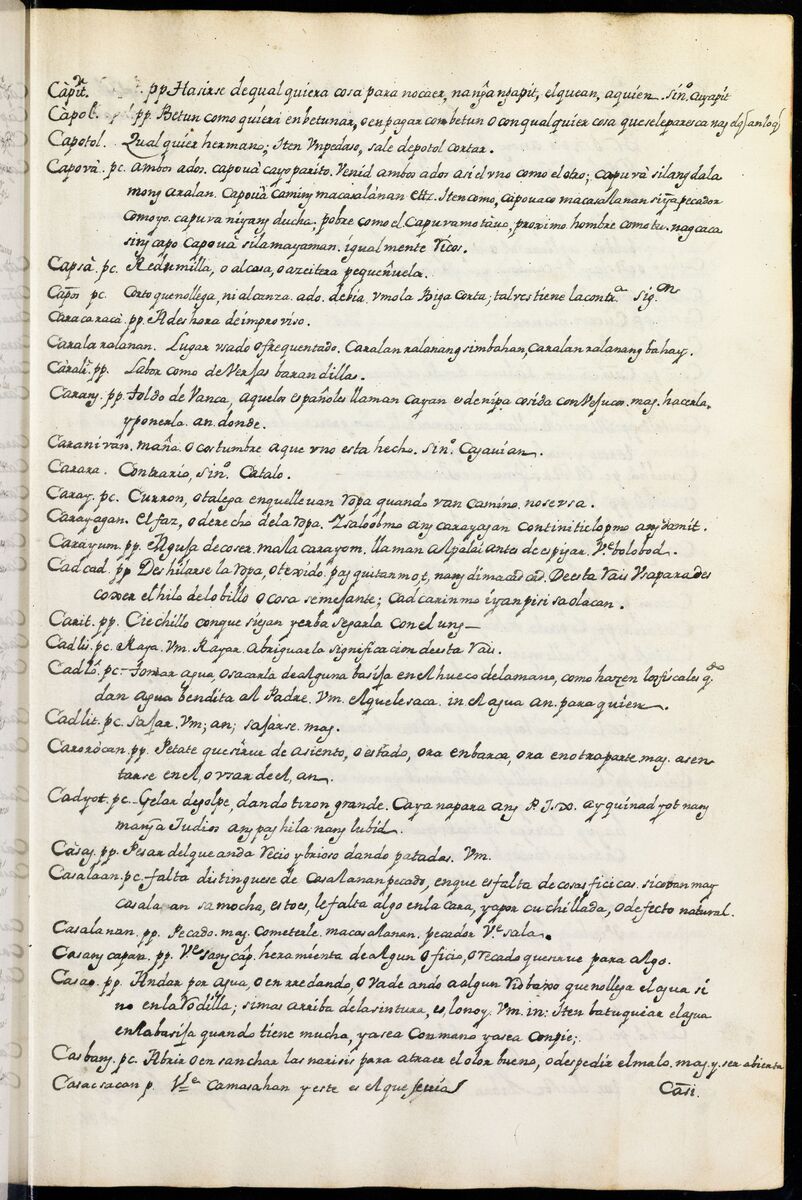 Càpit. pp Hasirse de qual quiera cosa para nocàer, nangangapit, elquean, aquien. sin.º Cuyapit
Càpol. pp. Betun como quiera enbetunar, o en pagar con betun o con qualquier cosa que sele paresca
Capotol. Qual quier hermano; Iten Vnpedaso, sale de potol cortar.
Capovà. pc. ambos ados. capouà cayo parito. Venid ambos ados asi el vno como el otro; capuvà silang dala
mong aralan. Capouà caming macasalànan etz. Iten como, capouaco macasalanan pecador
como yo. capuva niyang ducha. pobre como el. Capuvamo tàuo, proximo hombre como tu. nag caca
sing capo Capouà sila mayaman. igualmente Ricos.
Capsà. pc. Redomilla, o alcosa, o azeitera pequeñuela.
Capos pc. Corto que no llega, ni alcanza. ado. debia. vmo la Biga corta; talves tiene la contrª. sigon
Caracaracà. pp. A deshora de improviso.
Caralaralanan. Lugar vsado o frequentado. Caralanralanang simbahan, Caralanralanang bahay.
Càrali. pp. Labor como de Versas barandillas.
Carang. pp. Toldo de Vanca, aquelos españoles llaman Cayan es de nipa cosida con Vejucos. mag. hacerla,
y ponerla. an. donde.
Caranivan. maña. o costumbre a que vno esta hecho. sin.º Cajauian.
Carara. Contrario, sin.º Catalo.
Caray. pc. Curron, o talega en que lleuan ropa quando van camino. no se vsa.
Carayagan. el faz, o derecho de la ropa.
Carayum. pp. Aguja de coser. mala carayom, llaman al palai antes de espigar. Ve bolobod.
Cadcad. pp Deshilarse la ropa, o texido. pag quitar mo, t, nang dimacadcad. De esta Rais Vsapara des
coxer el hilo del obillo o cosa semejante; Cadcarin mo iyan pisi sa olacan.
Carit. pp. Ciechillo con que siegan yerba segarla con el ung
Cadlis. pc. Raya. Vm. Rayar. abriguar la significacion de esta Rais.
Cadlô. pc. Tomar agua, o sacarla de alguna basija en el hueco de la mano, como hazen los fiscales q.e
dan agua bendita al Padre. Vm. el quele saca. in. el agua an. para quien.
Cadlit. pc. sajar. Vm; an; sajarse. mag.
Caroròcan. pp. Petate que sirue de asiento, o estado, ora en barca, ora en otra parte mag. asen
tarse en el, o vsar de el, an.
Cadyot. pc. Gelar de golpe, dando tiron grande. Caya napara ang P. J. ay quinadyot nang
manga Judios ang pag hila nang lubid.
Càsag. pp. Pesar del que anda Recio y brioso dando patadas. Vm.
Casalaan. pc. falta distinguese de Casalanan pecado, en que es falta de cosas ficicas. sicovan may
casalaan sa mocha, esto es, le falta algo en la cara, ya por cuchillada, o defecto natural.
Casalanan. pp. Pecado. mag. Cometerle. macasalanan. pecador Ve. sala.
Casangcapan. pp. Ve sangcap. heramienta de algun oficio, o recado que sirue para algo.
Casao. pp. Andar por agua, o en rredando, o Vade ando algun Rio baxo que no llega el agua si
no en la rodilla; si mas arriba de la sintura, es, lonoy. Vm. in; Iten batuquiar el agua
en la basija quando tiene mucha, ya sea con mano ya sea con pie;
Casbang. pc. Abrir o en sanchar las narisis para atraer el olor bueno, o despedir el malo. mag. y. ser abierta
Casacsacan p. Vde Camasahan y este es el que seruia
Casi.